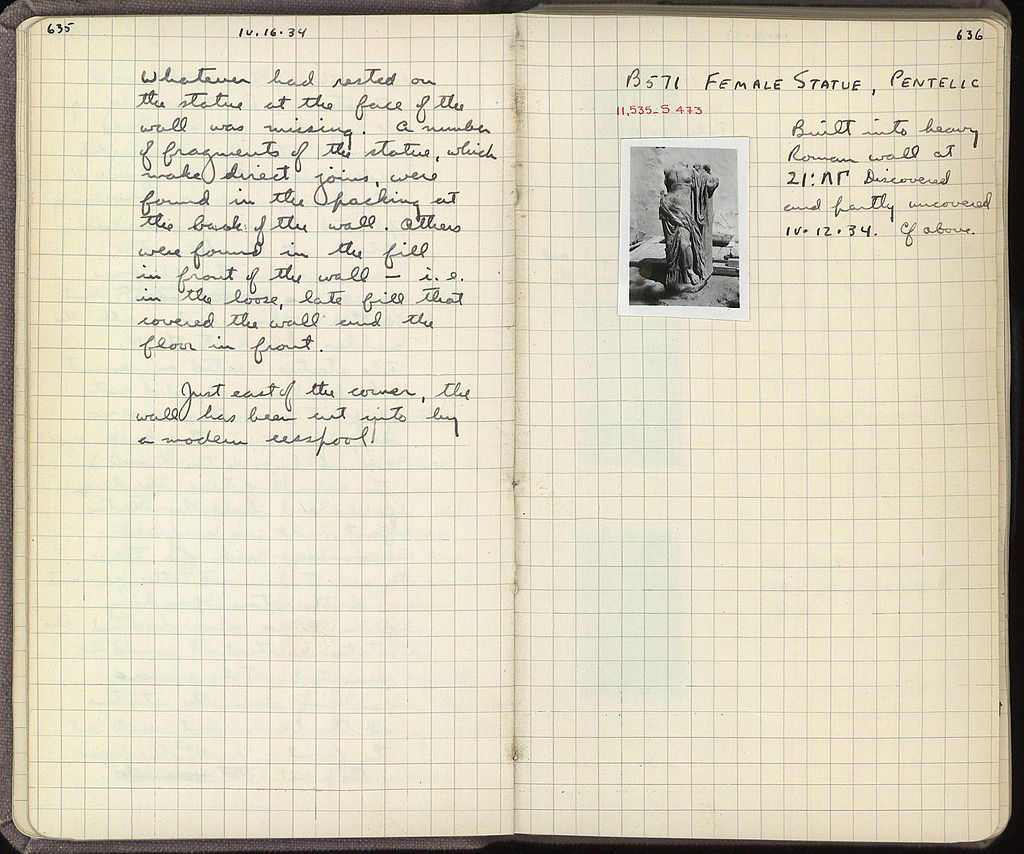 635
IV.16.34
Whatever had rested on
the statue at the face of the
wall was missing. A number
of fragments of the statue, which
make direct joins, were
found in the packing at
the back of the wall. Others
were found in the fill
in front of the wall – i.e.
in the loose, late fill that
covered the wall and the
floor in front.
Just east of the corner, the
wall has been cut into by
a modern cesspool.
636
B571 FEMALE STATUE, PENTELIC
11,535_S 473
Built into heavy
Roman wall at
21:ΛΓ Discovered
and partly uncovered
IV.12.34. Cf above.